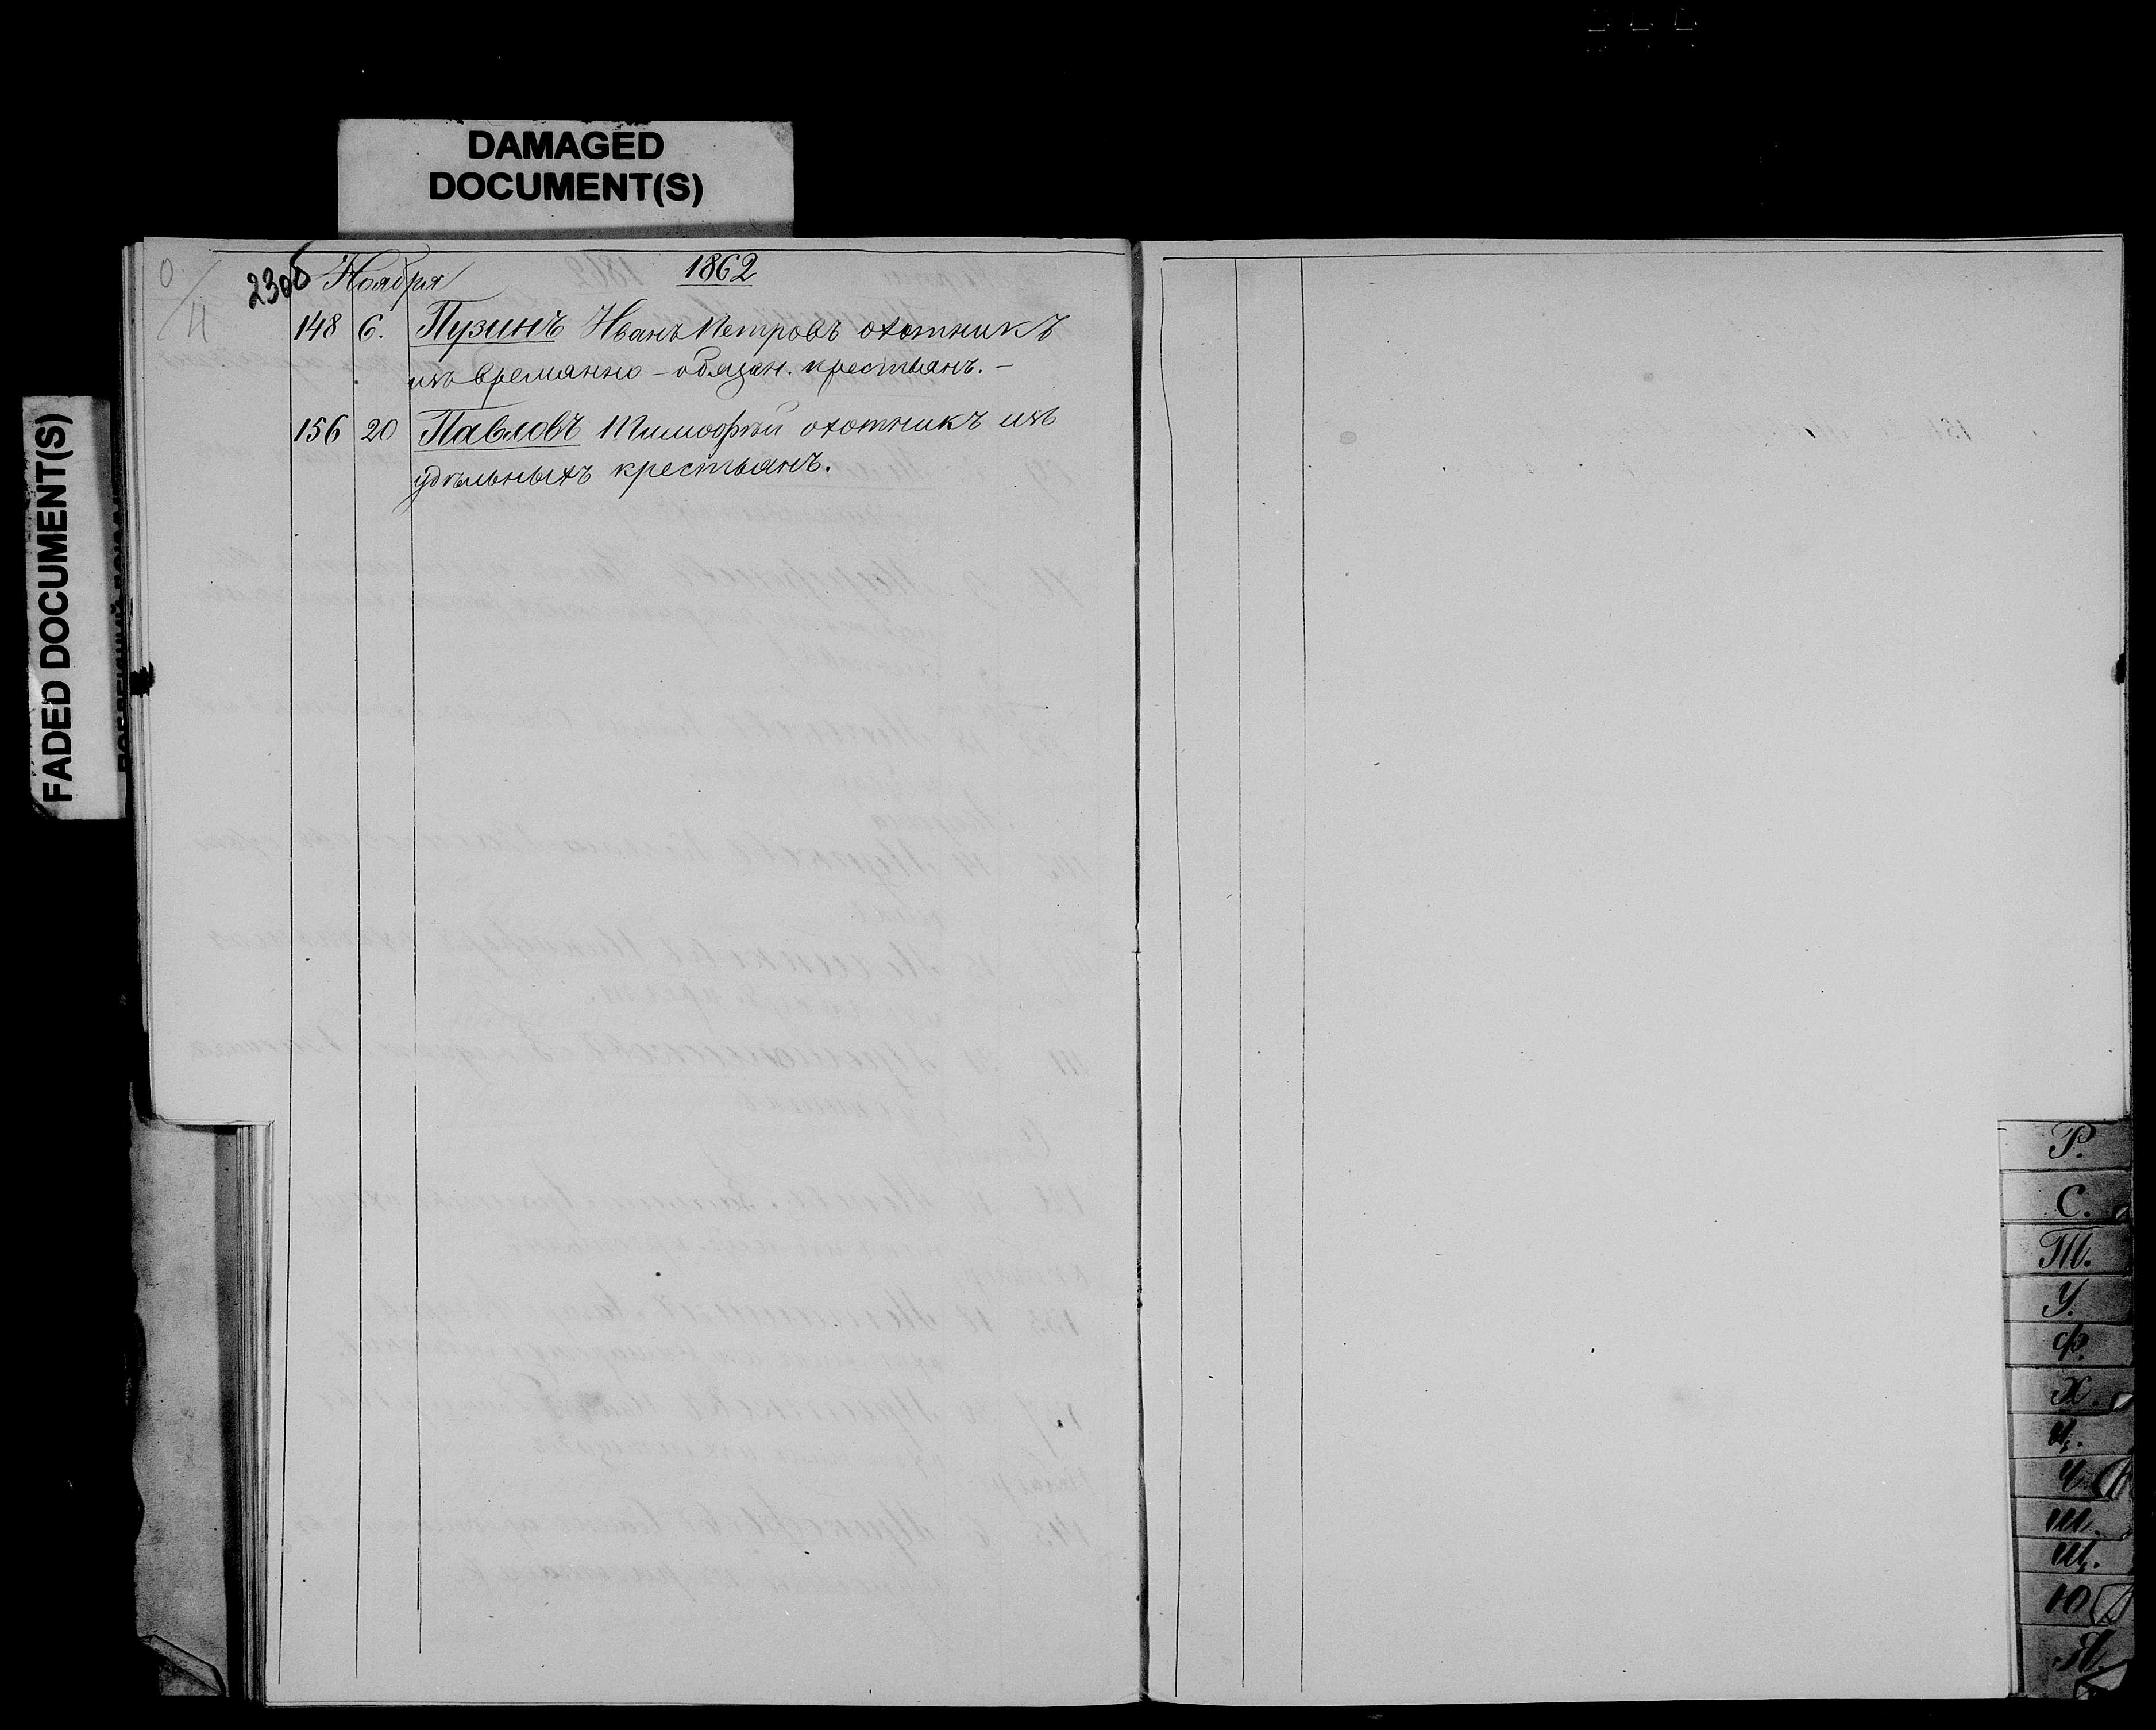 DAMAGED
DOCUMENT(S)
FADED DOCUMENT(S)
230б Ноября 1862
148 6. Пузинъ Иванъ Петровъ охотникъ
изъ временно-обязан. крестьянъ. –
156 20 Павловъ Тимофѣй охотникъ изъ
удѣльныхъ крестьянъ.
Р.
С.
Т.
У.
Ф.
Х.
Ц.
Ч.
Ш.
Щ.
Ю
Я.